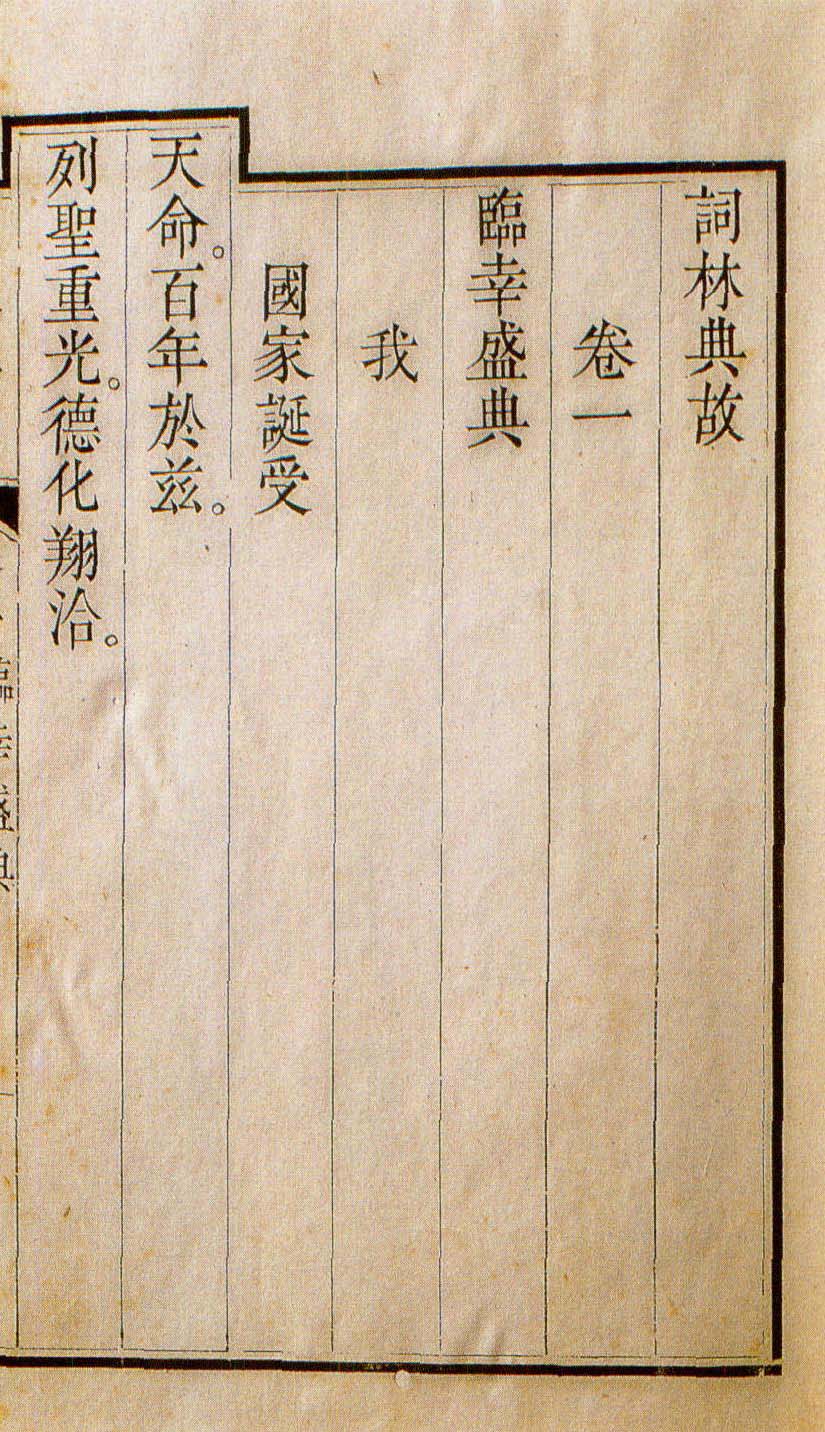 詞林典故
卷一
臨幸盛典
我
國家誕受
天命。百年於茲。
列聖重光。德化翔洽。
臨幸盛典